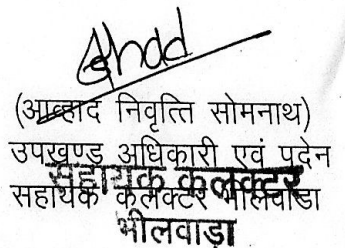 (आव्हाद निवृत्ति सोमनाथ)
उपखण्ड अधिकारी एवं पदेन
सहायक कलक्टर भीलवाडा
सहायक कलक्टर
भीलवाड़ा